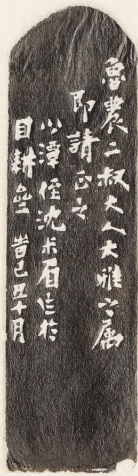 魯農二叔大人大雅之属
即請正之
小潭侄沈米眉作於
目耕盦 昔己丑十月